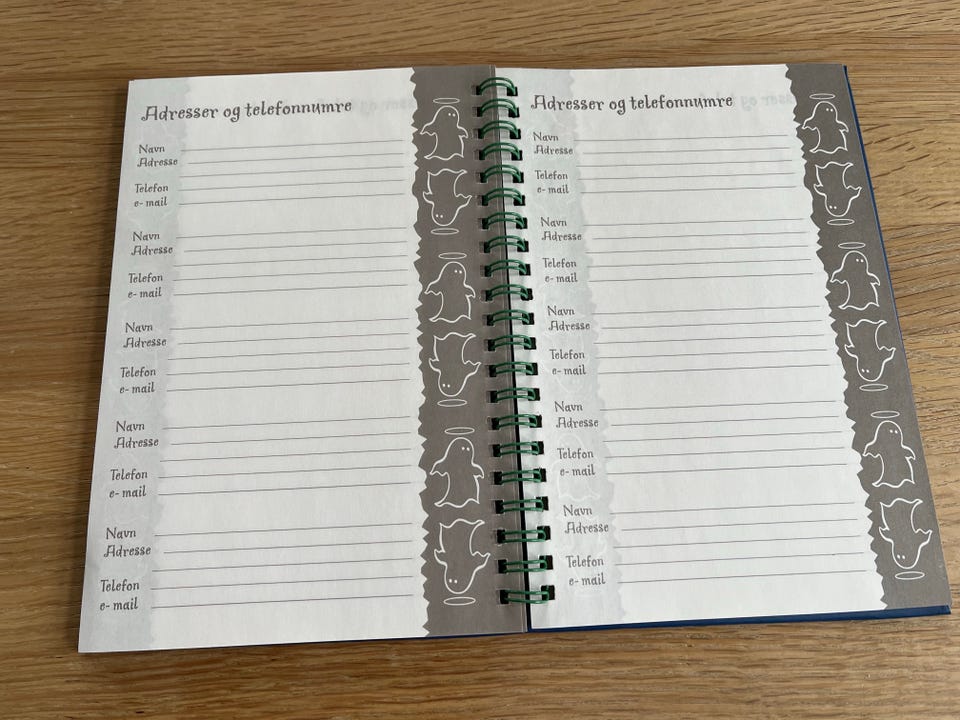 Adresser og telefonnumre
Navn
Adresse
Telefon
e-mail
Navn
Adresse
Telefon
e-mail
Navn
Adresse
Telefon
e-mail
Navn
Adresse
Telefon
e-mail
Navn
Adresse
Telefon
e-mail
Adresser og telefonnumre
Navn
Adresse
Telefon
e-mail
Navn
Adresse
Telefon
e-mail
Navn
Adresse
Telefon
e-mail
Navn
Adresse
Telefon
e-mail
Navn
Adresse
Telefon
e-mail